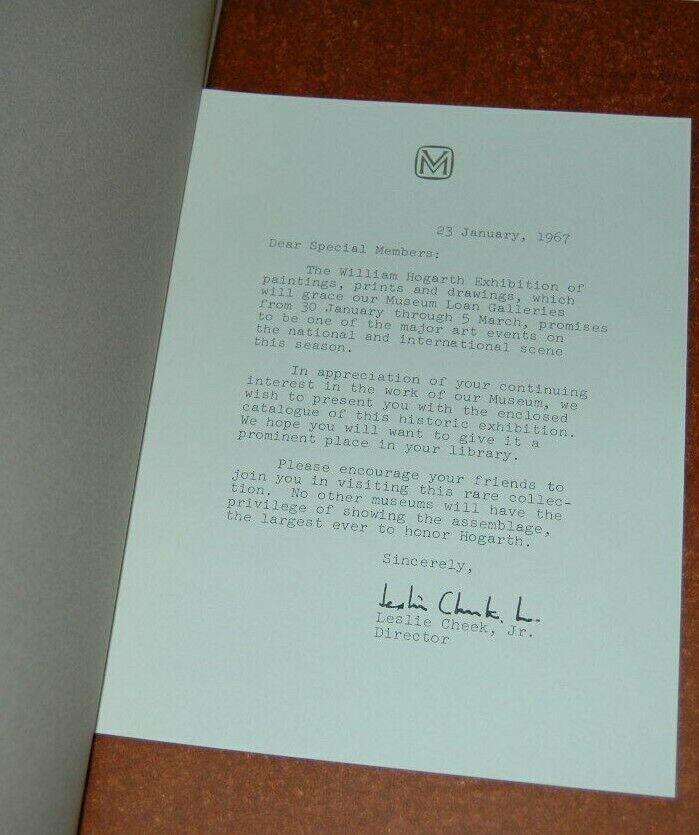 VM
23 January, 1967
Dear Special Members:
The William Hogarth Exhibition of
paintings, prints and drawings, which
will grace our Museum Loan Galleries
from 30 January through 5 March, promises
to be one of the major art events on
the national and international scene
this season.
In appreciation of your continuing
interest in the work of our Museum, we
wish to present you with the enclosed
catalogue of this historic exhibition.
We hope you will want to give it a
prominent place in your library.
Please encourage your friends to
join you in visiting this rare collec-
tion. No other museums will have the
privilege of showing the assemblage,
the largest ever to honor Hogarth.
Sincerely,
Leslie Cheek, Jr.
Leslie Cheek, Jr.
Director